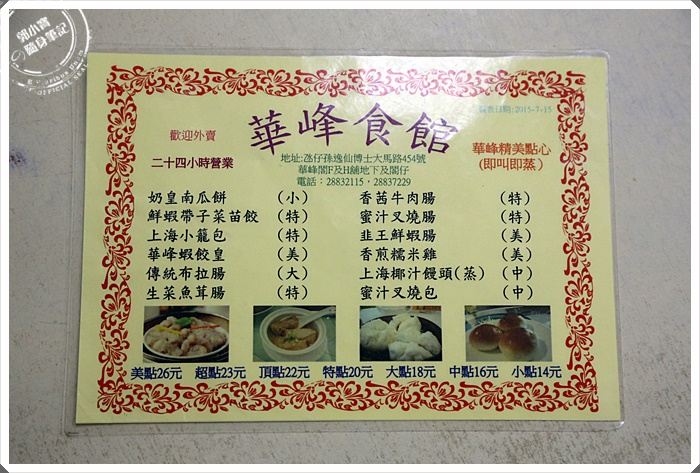 郭小寶
隨身筆記
OFFICIAL SEAL
歡迎外賣
二十四小時營業
華峰食館
地址:氹仔孫逸仙博士大馬路454號
華峰閣F及H舖地下及閣仔
電話：28832115，28837229
2015-7-15
華峰精美點心
(即叫即蒸)
奶皇南瓜餅 (小)
鮮蝦帶子菜苗餃 (特)
上海小籠包 (特)
華峰蝦餃皇 (美)
傳統布拉腸 (大)
生菜魚茸腸 (特)
香茜牛肉腸 (特)
蜜汁叉燒腸 (特)
韭王鮮蝦腸 (美)
香煎糯米雞 (美)
上海椰汁饅頭(蒸) (中)
蜜汁叉燒包 (中)
美點26元 超點23元 頂點22元 特點20元 大點18元 中點16元 小點14元